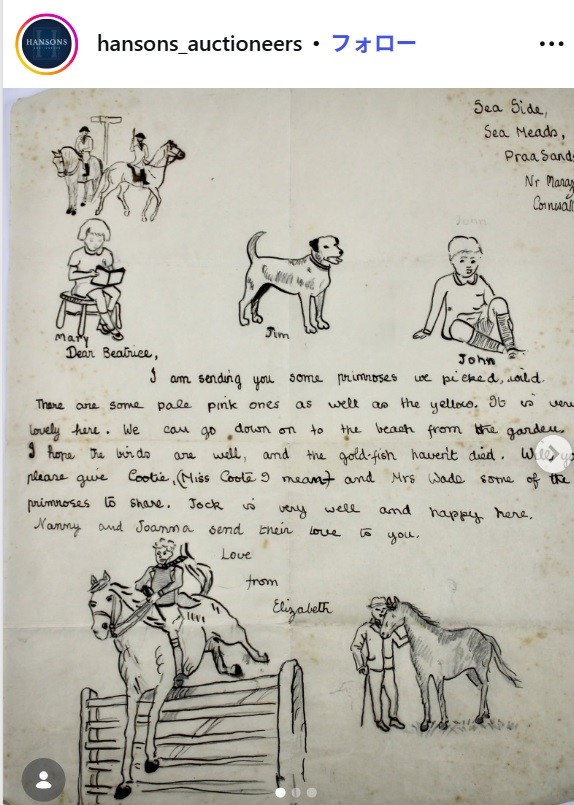 HANSONS
hansons_auctioneers • フォロー
Sea Side,
Sea Meads,
Praa Sands
Nr Maraz
Cornwall
John
Mary
Jim
John
Dear Beatrice,
I am sending you some primroses we picked, wild.
There are some pale pink ones as well as the yellow. It is very
lovely here. We can go down on to the beach from the garden.
I hope the birds are well, and the gold-fish haven't died. Will you
please give Cootie, (Miss Coote I mean) and Mrs Wade some of the
primroses to share. Jock is very well and happy here.
Nanny and Joanna send their love to you.
Love
from
Elizabeth